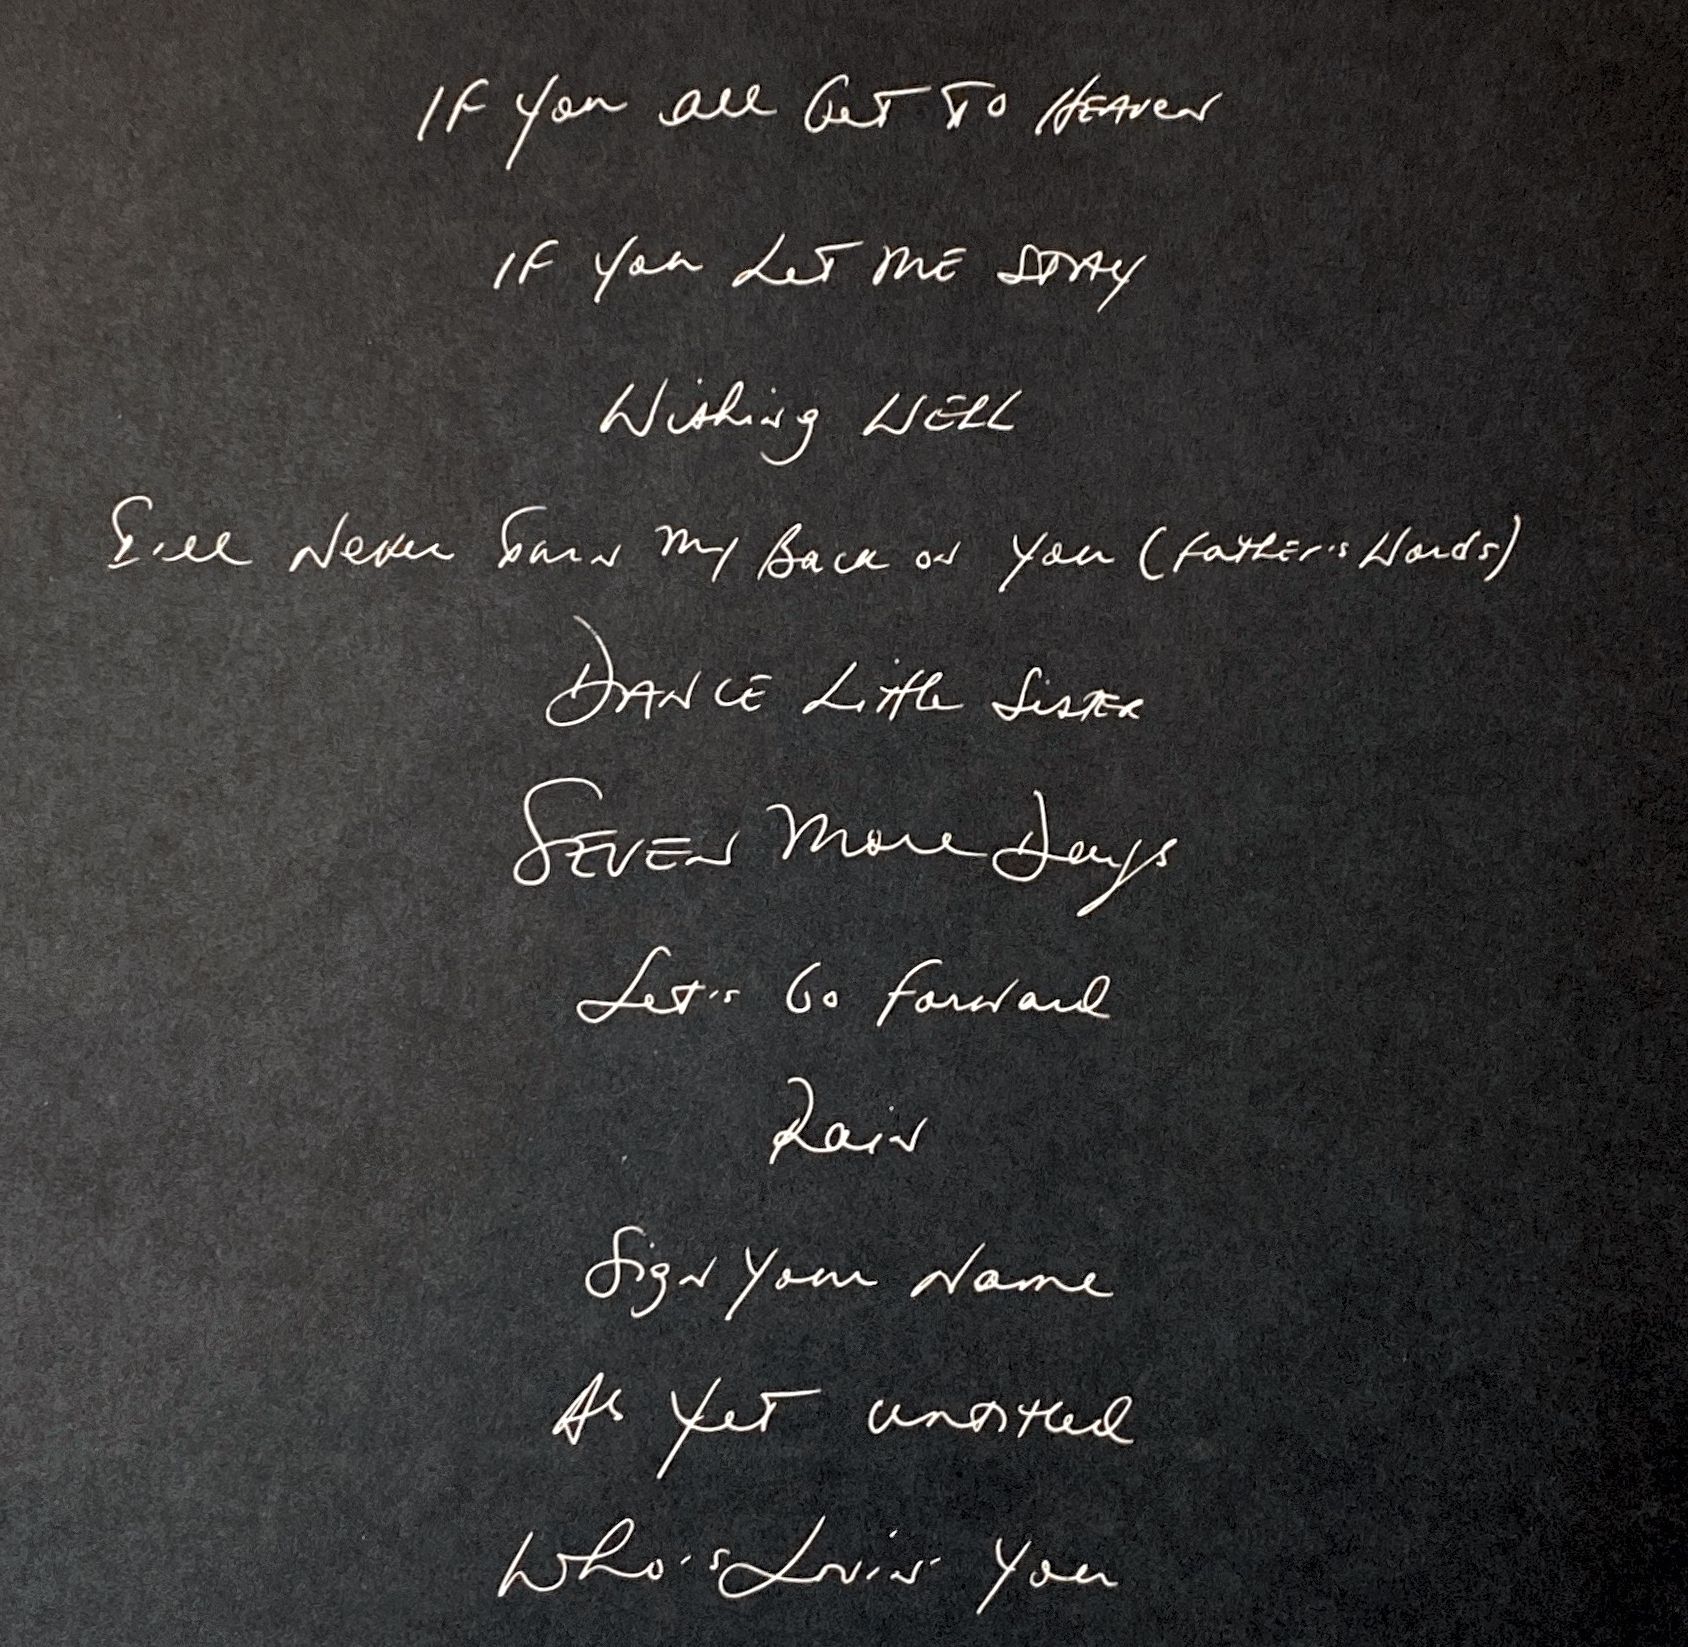 If You All Get To Heaven
If You Let Me Stay
Wishing Well
I'll Never Turn My Back on You (Father's Words)
Dance Little Sister
Seven More Days
Let's Go Forward
Rain
Sign Your Name
As Yet Untitled
Who's Lovin' You